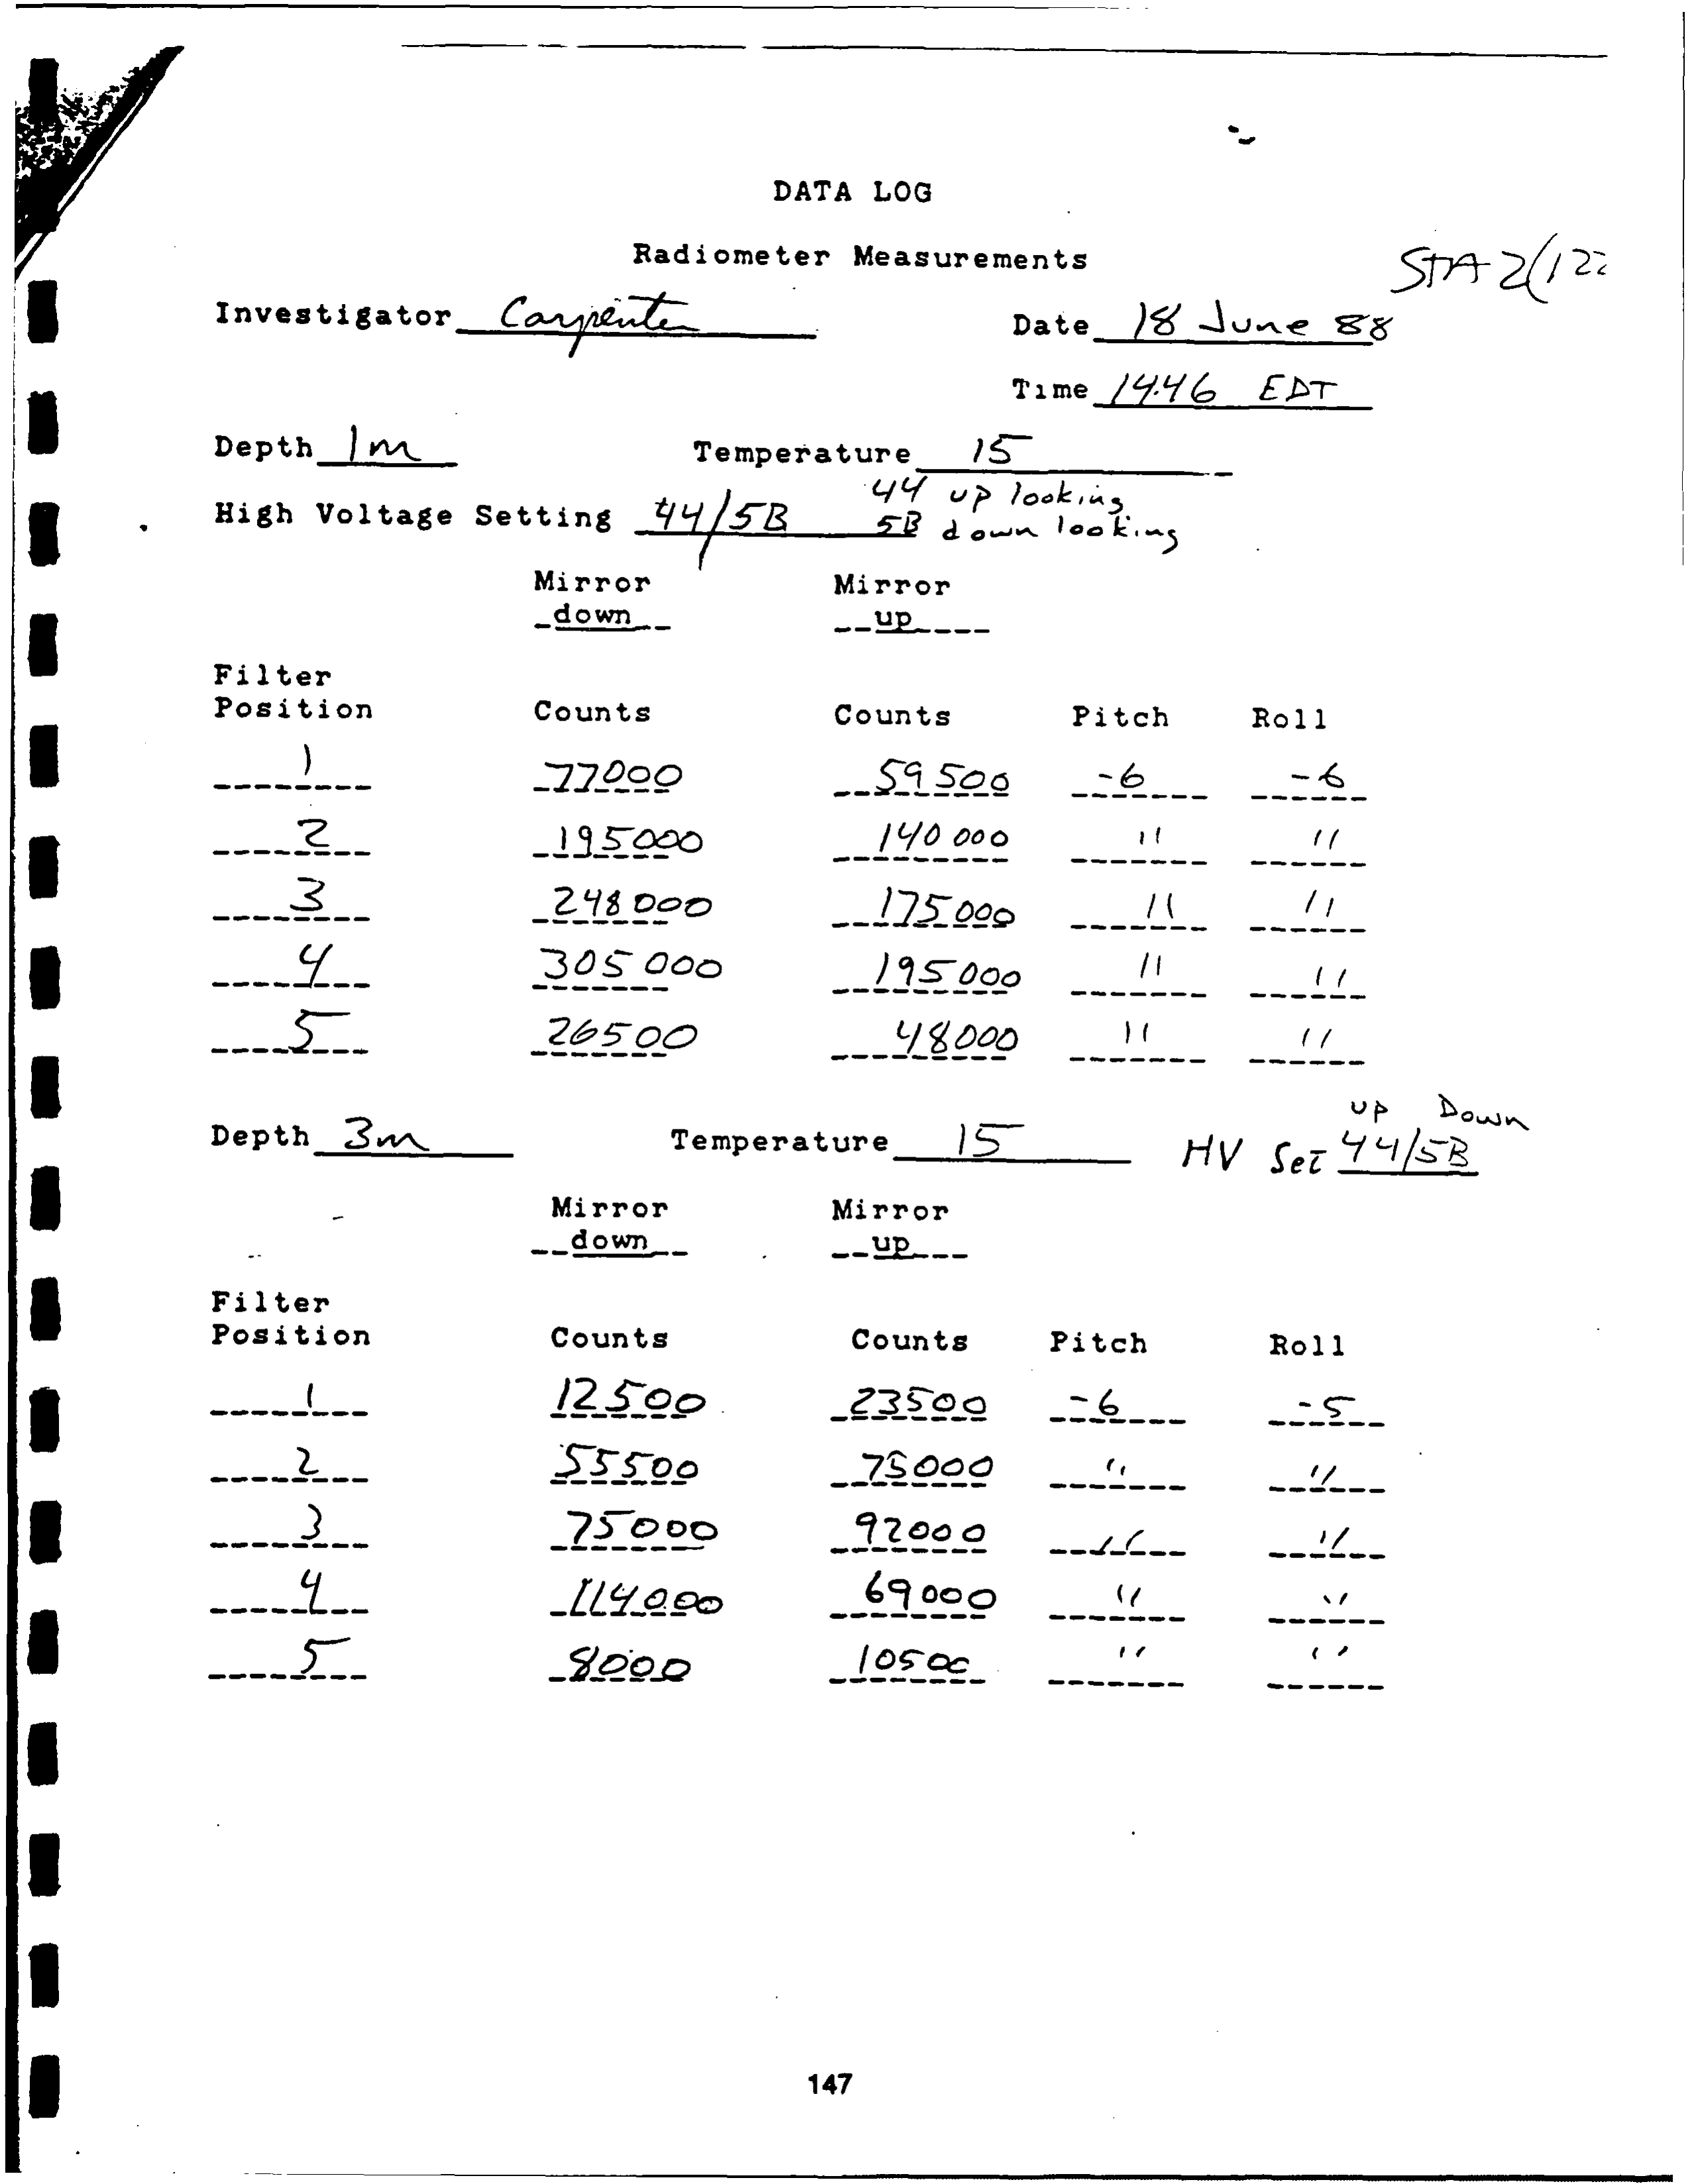 DATA LOG
Radiometer Measurements
STA 2(122
Investigator Carpenter Date 18 June 88
Time 14:46 EDT
Depth 1m Temperature 15
High Voltage Setting 44/5B 44 up looking
5B down looking
Mirror Mirror
down up
Filter
Position Counts Counts Pitch Roll
1 77000 59500 -6 -6
2 195000 140000 " "
3 248000 175000 " "
4 305000 195000 " "
5 26500 48000 " "
up Down
Depth 3m Temperature 15 HV Set 44/5B
Mirror Mirror
down up
Filter
Position Counts Counts Pitch Roll
1 12500 23500 -6 -5
2 55500 75000 " "
3 75000 92000 " "
4 114000 69000 " "
5 8000 10500 " "
147